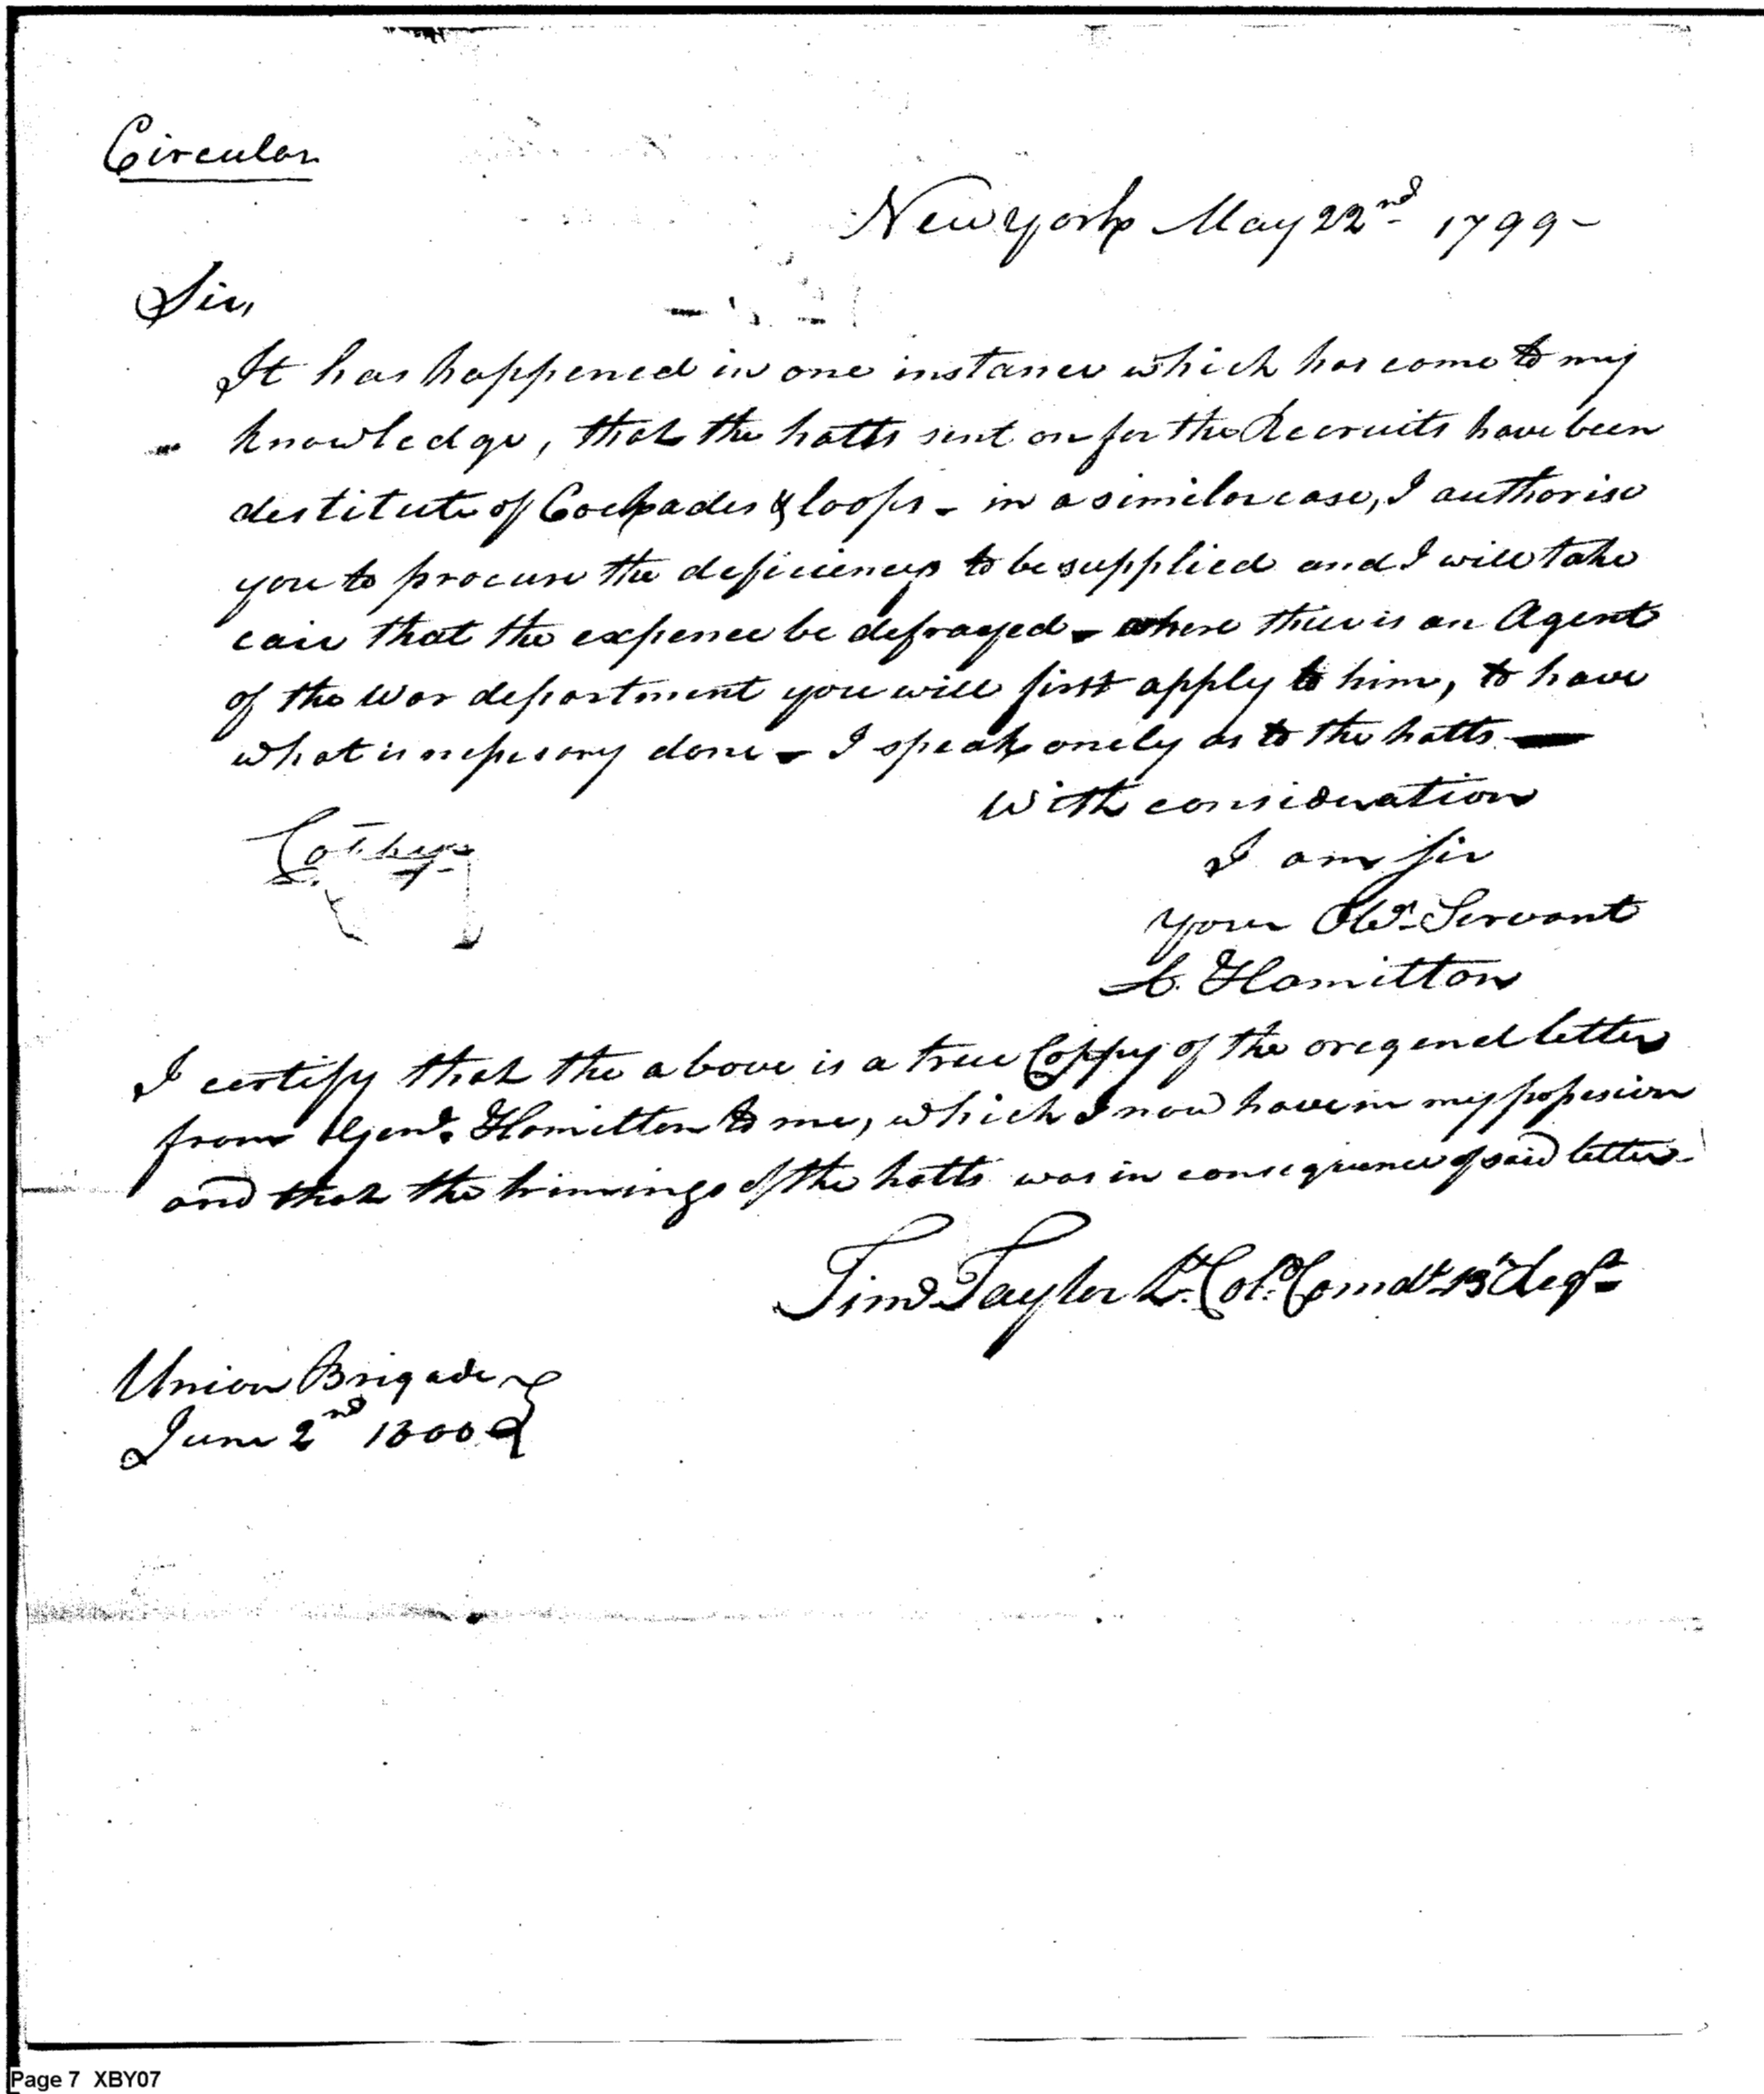 Circular
New york May 22nd 1799 -
Sir,
It has happened in one instance which has come to my
knowledge, that the hatts sent on for the Recruits have been
destitute of Cockades & loops - in a similar case, I authorise
you to procure the deficiency to be supplied and I will take
care that the expence be defrayed - where there is an Agent
of the War department you will first apply to him, to have
what is nessesary done - I speak onely as to the hatts -
With consideration
I am Sir
your Obt. Servant
A. Hamilton
I certify that the above is a true Coppy of the oregenel letter
from Genl. Hamilton to me, which I now have in my possesion
and that the trimings of the hatts was in consequence of said letter -
Timo Taylor Lt. Col. Comdt 13th Regt
Union Brigade }
June 2nd 1800 }
Page 7 XBY07